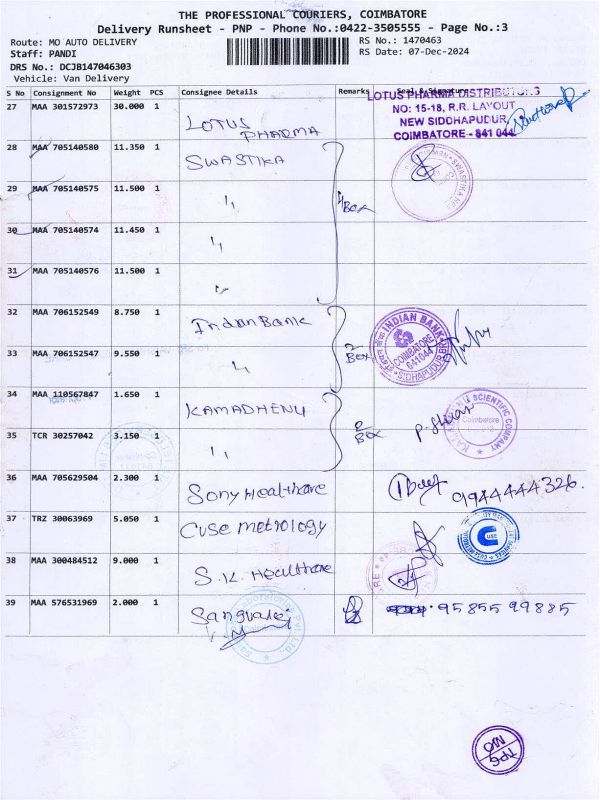 THE PROFESSIONAL COURIERS, COIMBATORE
Delivery Runsheet - PNP - Phone No.:0422-3505555 - Page No.:3
Route: MO AUTO DELIVERY
Staff: PANDI
DRS No.: DCJB147046303
Vehicle: Van Delivery
RS No.: 1470463
RS Date: 07-Dec-2024
S No Consignment No Weight PCS Consignee Details Remarks Seal & Signature
27 MAA 301572973 30.000 1 LOTUS PHARMA
LOTUS PHARMA DISTRIBUTORS
NO: 15-18, R.R. LAYOUT
NEW SIDDHAPUDUR,
COIMBATORE - 641 044
28 MAA 705140580 11.350 1 SWASTIKA
29 MAA 705140575 11.500 1 " BOX
30 MAA 705140574 11.450 1 "
31 MAA 705140576 11.500 1 "
32 MAA 706152549 8.750 1 Indian Bank
33 MAA 706152547 9.550 1 " 2 Box
INDIAN BANK
COIMBATORE
641044
SIDHAPUDUR
34 MAA 110567847 1.650 1 KAMADHENU
35 TCR 30257042 3.150 1 " 2 BOX
SCIENTIFIC COMPANY
Coimbatore
36 MAA 705629504 2.300 1 Sony Healthcare 9944444326.
37 TRZ 30063969 5.050 1 CUSE metrology
CUSE
38 MAA 300484512 9.000 1 S.K. Healthcare
39 MAA 576531969 2.000 1 95855 99885
TPC
MO